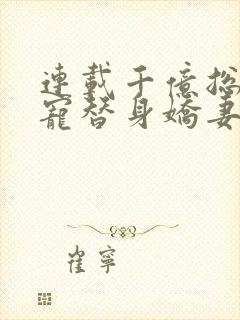 連載千億総
寵替身嬌妻
崔寧